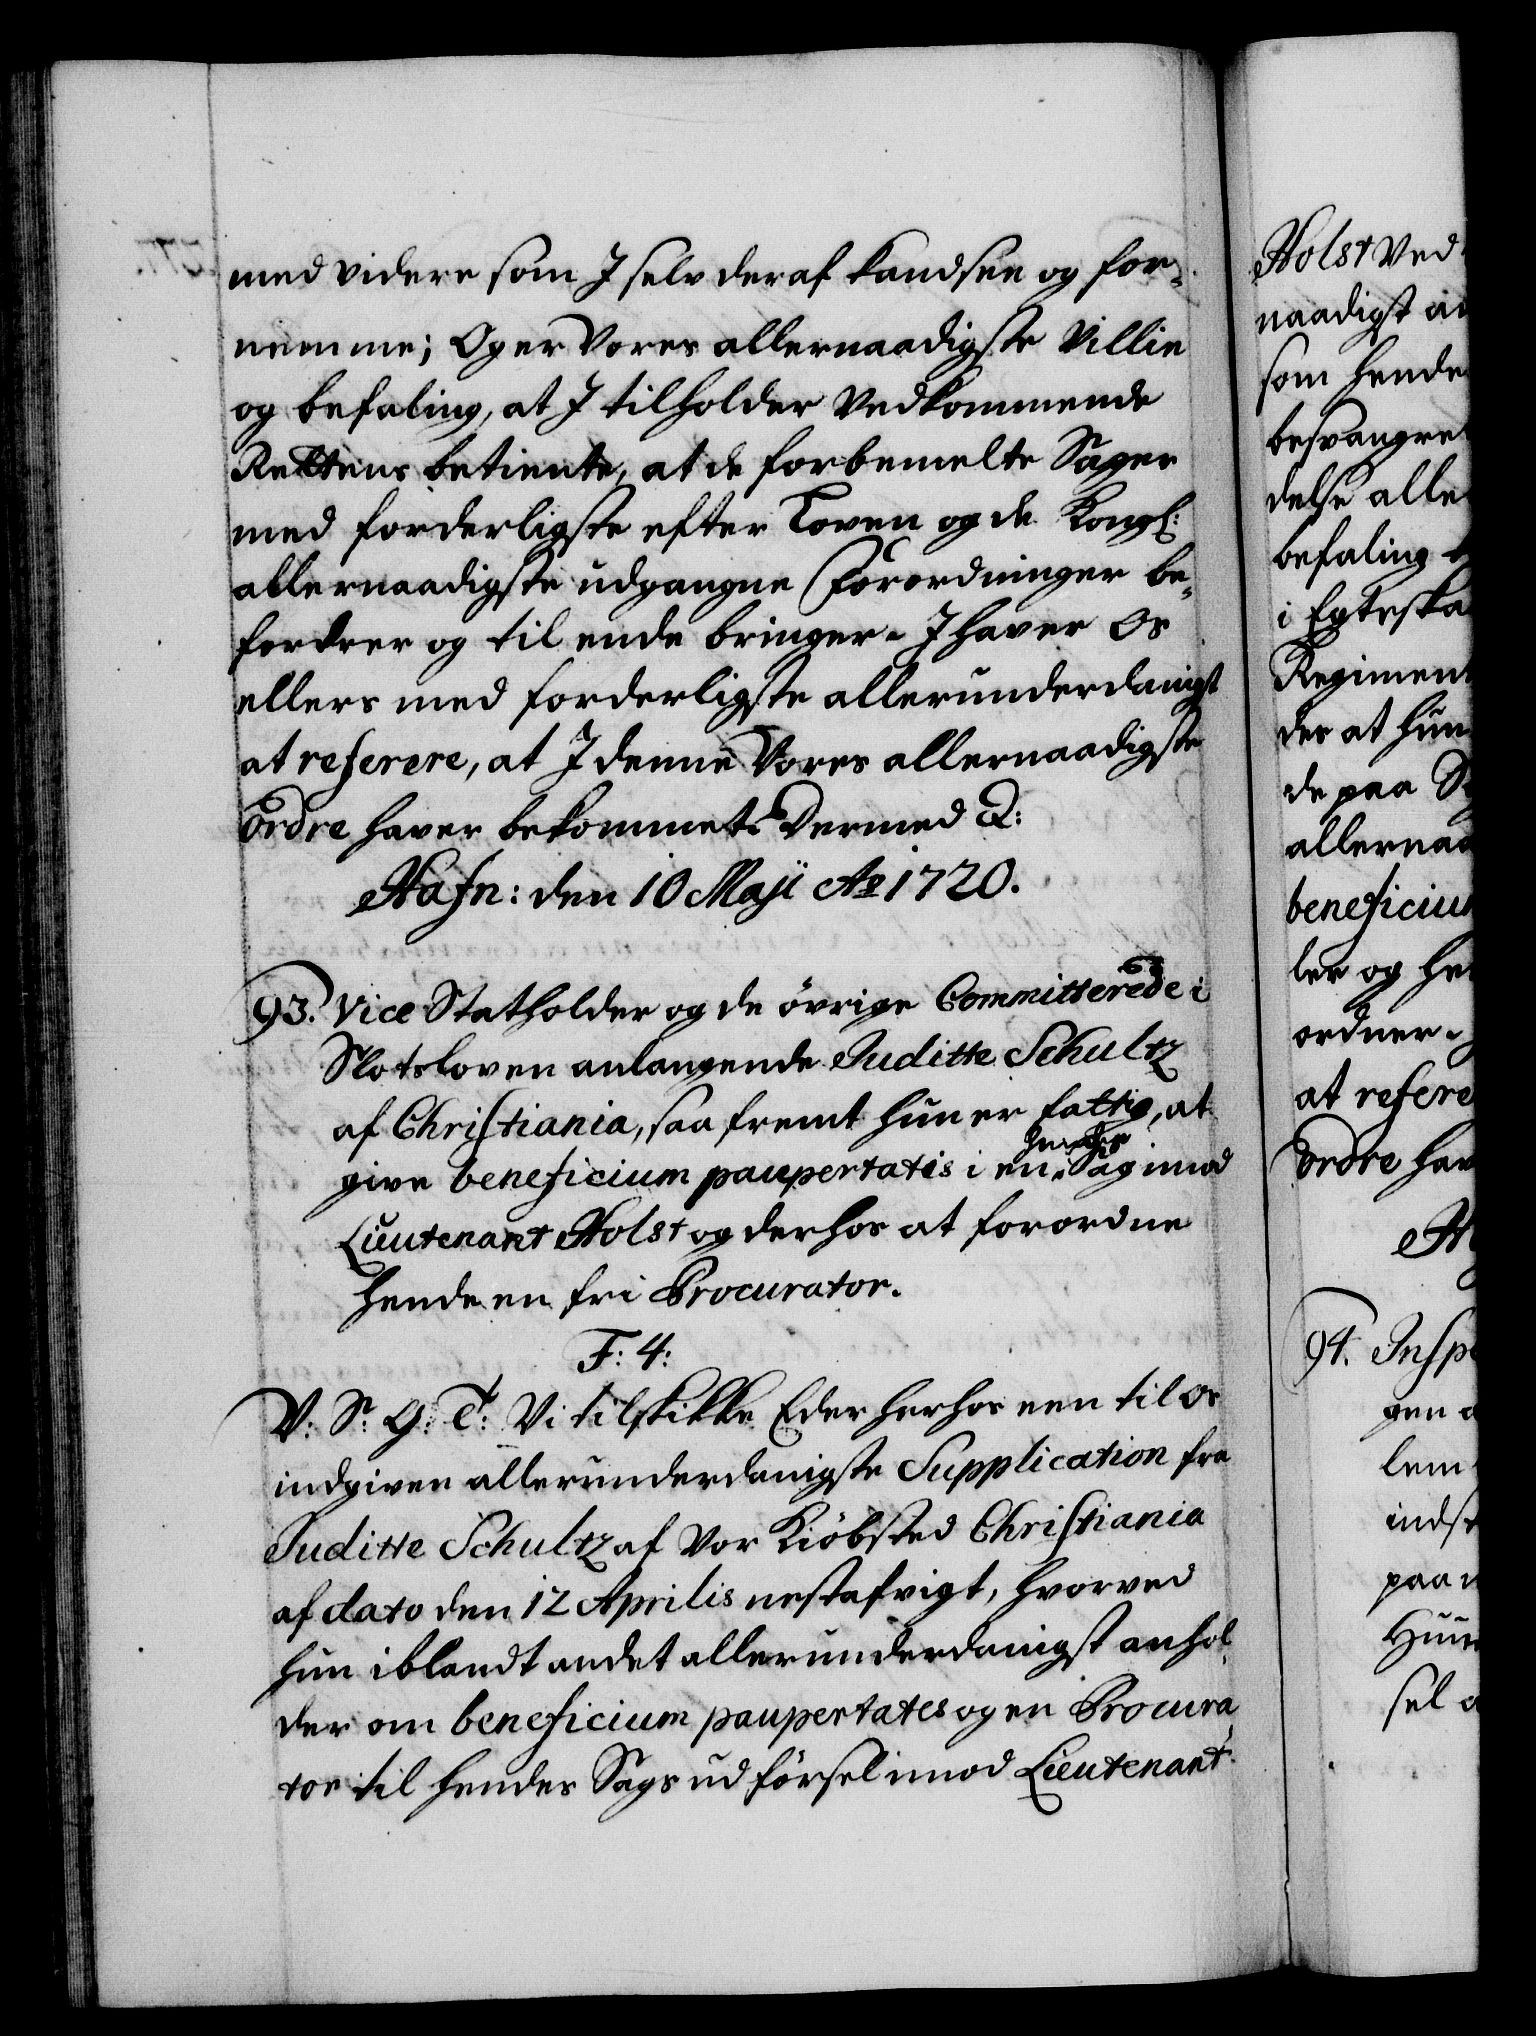 med videre som I selv deraf kand see og for-
nemme; Og er Vores allernaadigste Villie
og befaling, at I tilholder Vedkommende
Rettens betiente, at de forbemelte Sager
med forderligste efter Loven og de Kongl:
allernaadigste udgangne Forordninger be-
fordrer og til ende bringer. I haver Os
ellers med forderligste allerunderdanigst
at referere, at I denne Vores allernaadigste
ordre haver bekommet. Dermed &:
Hafn: den 10 Maji Ao 1720.
93. Vice Statholder og de övrige Committerede i
Slotsloven anlangende Juditte Schultz
af Christiania, saa fremt hun er fattig, at
give beneficium paupertatis i en hendes Sag imod
Lieutenant Holst og derhos at forordne
hende en fri Procurator.
F: 4:
V: S: G: T: Vi tilskikke Eder herhos een til Os
indgiven allerunderdanigste Supplication fra
Juditte Schultz af Vor Kiöbsted Christiania
af dato den 12 Aprilis nestafvigt, hvorved
hun iblandt andet allerunderdanigst anhol-
der om beneficium paupertates og en Procura-
tor til hendes Sags udförsel imod Lieutenant
Holst Ved
naadigst an
som hende
besvangre
delse alle
befaling
i Egteska
Regiment
der at hun
de paa S
allernaa
beneficium
ler og he
ordner.
at refere
ordre hav
H
94. Insp
gen a
lem
indst
paa
Huu
sel a